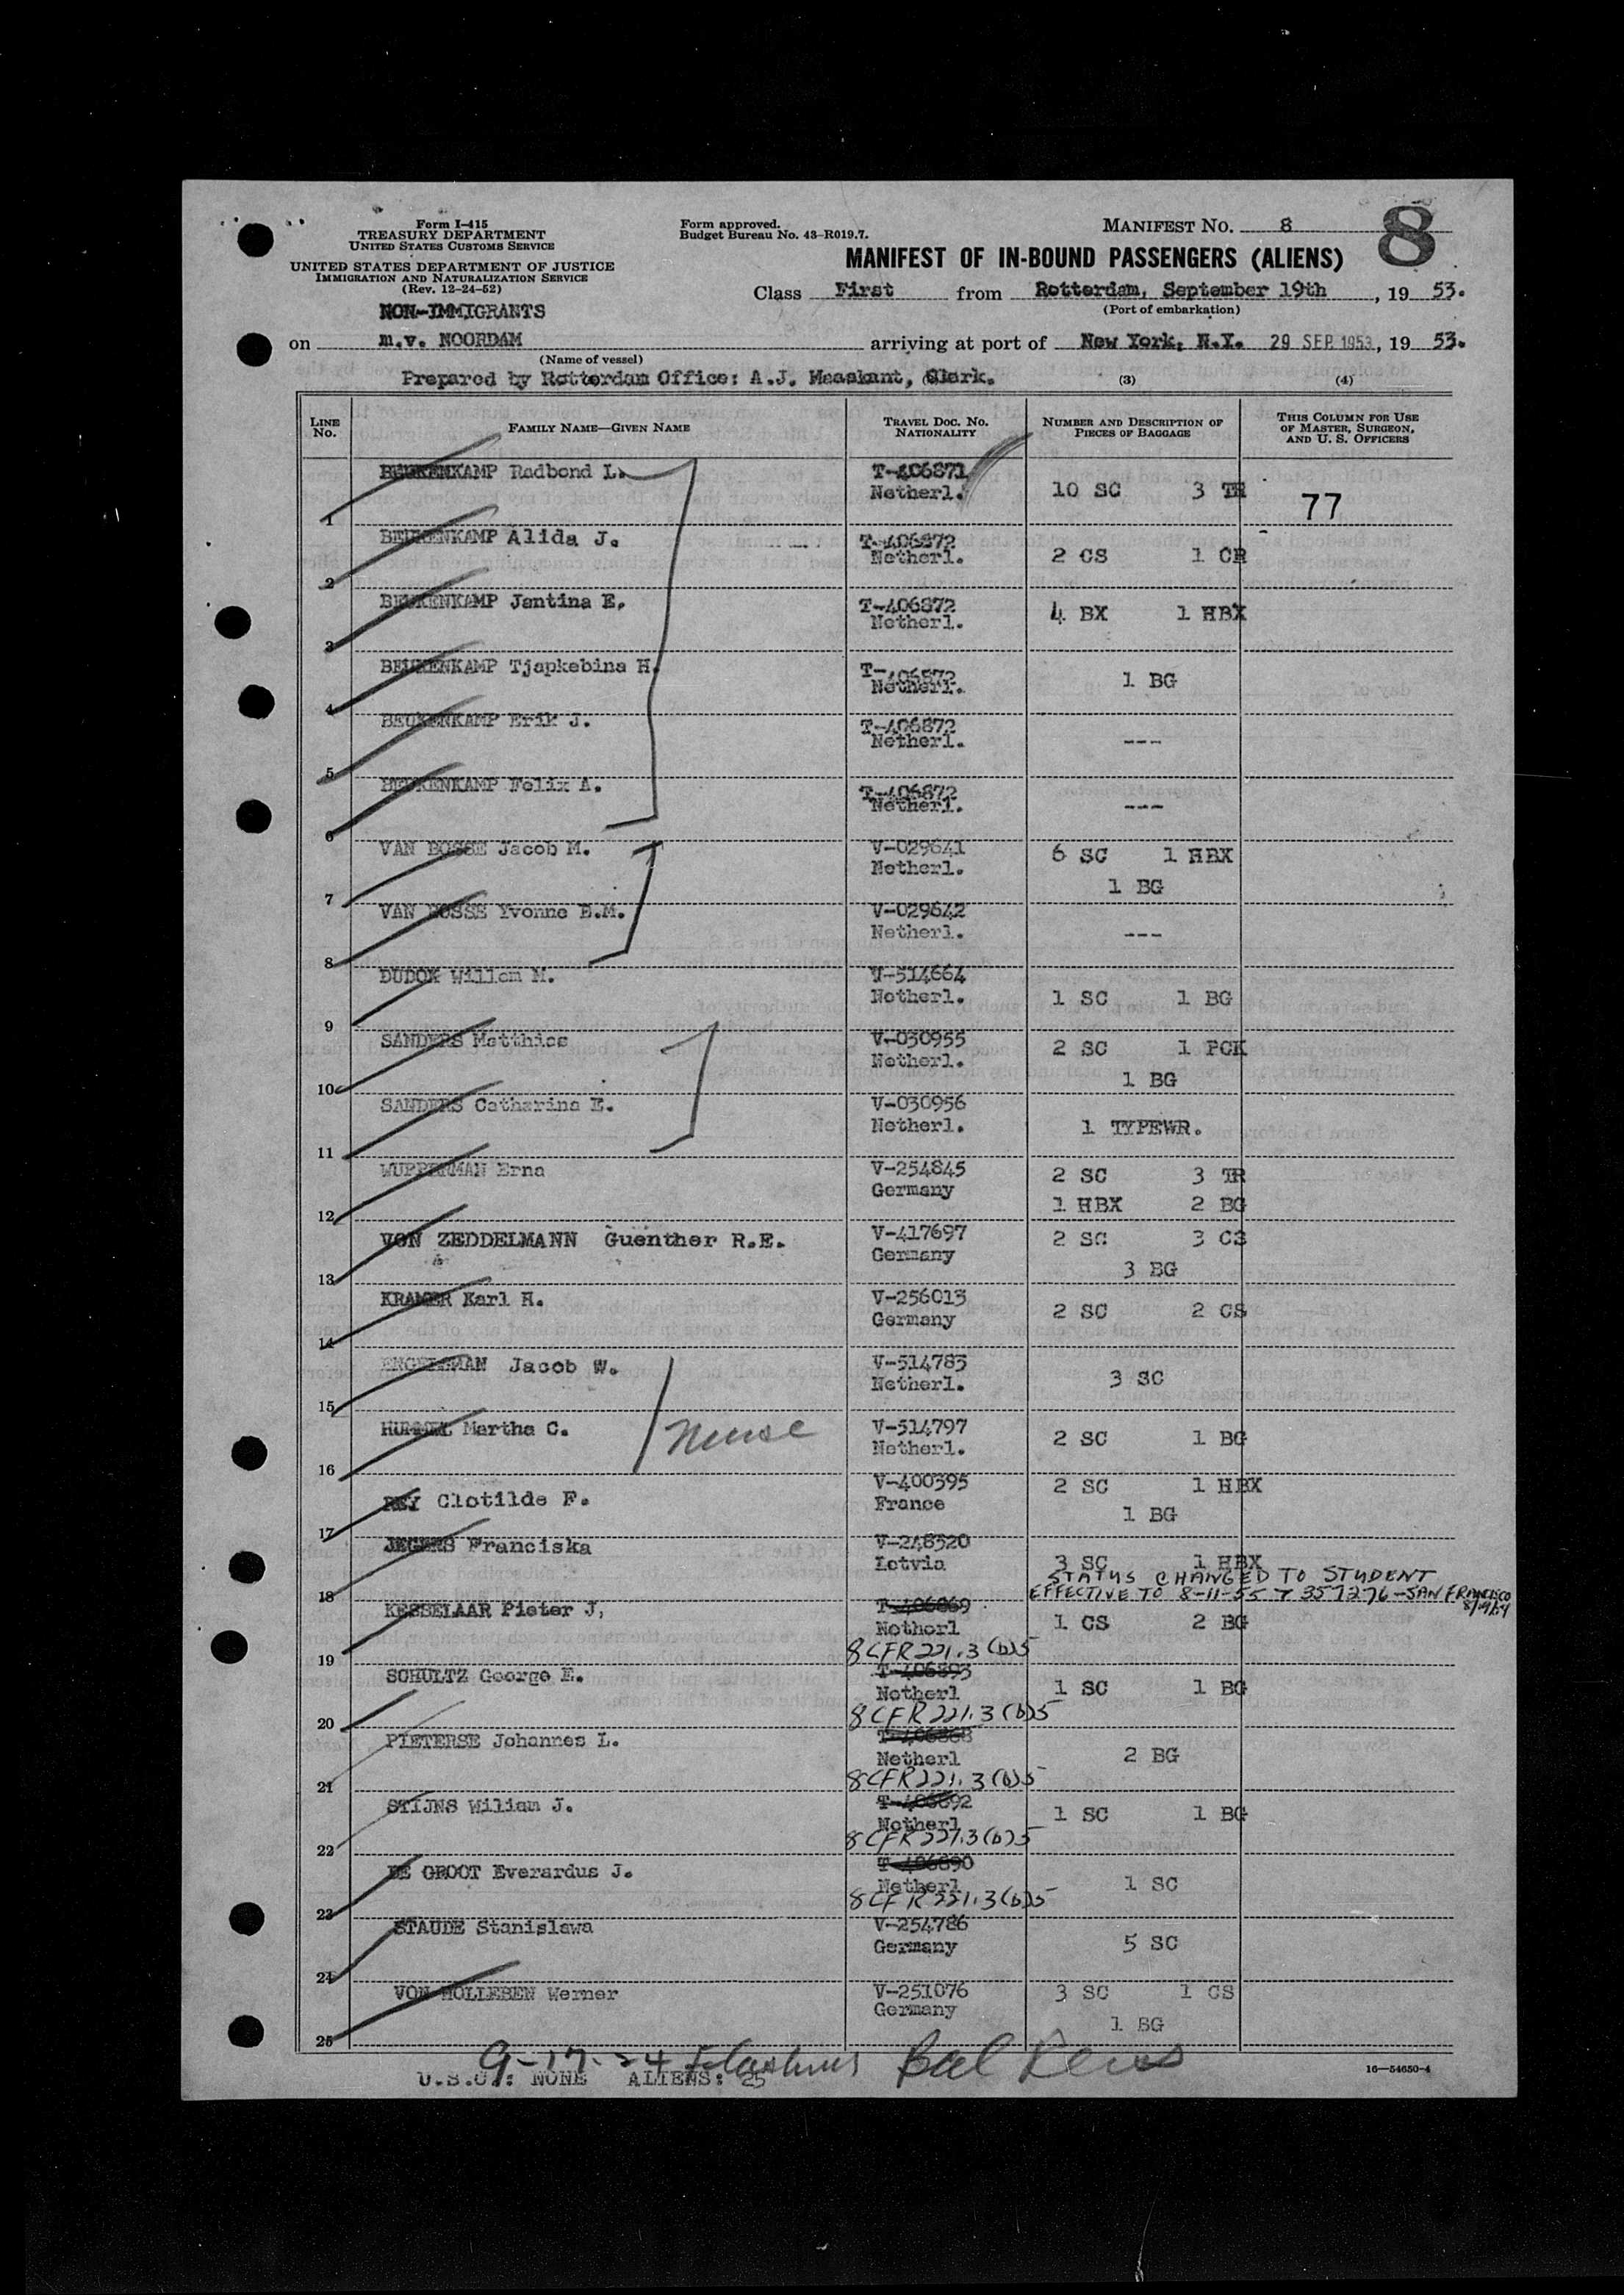 Form I-415
TREASURY DEPARTMENT
UNITED STATES CUSTOMS SERVICE
UNITED STATES DEPARTMENT OF JUSTICE
IMMIGRATION AND NATURALIZATION SERVICE
(Rev. 12-24-52)
Form approved.
Budget Bureau No. 43-R019.7.
MANIFEST No. 8
8
MANIFEST OF IN-BOUND PASSENGERS (ALIENS)
Class First from Rotterdam, September 19th, 19 53.
(Port of embarkation)
NON-IMMIGRANTS
on m.v. NOORDAM arriving at port of New York, N.Y. 29 SEP 1953, 19 53.
(Name of vessel)
Prepared by Rotterdam Office: A.J. Maaskant, Clerk.
(3) (4)
LINE No. FAMILY NAME—GIVEN NAME TRAVEL DOC. NO. NATIONALITY NUMBER AND DESCRIPTION OF PIECES OF BAGGAGE THIS COLUMN FOR USE OF MASTER, SURGEON, AND U. S. OFFICERS
1 BEUKENKAMP Radbond L. T-406871 Netherl. 10 SC 3 TR 77
2 BEUKENKAMP Alida J. T-406872 Netherl. 2 CS 1 CR
3 BEUKENKAMP Jantina E. T-406872 Netherl. 4 BX 1 HBX
4 BEUKENKAMP Tjapkebina H. T-406872 Netherl. 1 BG
5 BEUKENKAMP Erik J. T-406872 Netherl. ---
6 BEUKENKAMP Felix A. T-406872 Netherl. ---
7 VAN BOSSE Jacob M. V-029641 Netherl. 6 SC 1 HBX
1 BG
8 VAN BOSSE Yvonne E.M. V-029642 Netherl. ---
9 DUDOK Willem M. V-514664 Netherl. 1 SC 1 BG
10 SANDERS Matthics V-030955 Netherl. 2 SC 1 PCK
1 BG
11 SANDERS Catharina E. V-030956 Netherl. 1 TYPEWR.
12 WUPPERMAN Erna V-254845 Germany 2 SC 3 TR
1 HBX 2 BG
13 VON ZEDDELMANN Guenther R.E. V-417697 Germany 2 SC 3 CS
3 BG
14 KRAMER Karl H. V-256013 Germany 2 SC 2 CS
15 ENGELSMAN Jacob W. V-514783 Netherl. 3 SC
16 HUMMEL Martha C. Nurse V-514797 Netherl. 2 SC 1 BG
17 REY Clotilde F. V-400395 France 2 SC 1 HBX
1 BG
18 JEGERS Franciska V-248320 Latvia 3 SC 1 HBX
STATUS CHANGED TO STUDENT
EFFECTIVE TO 8-11-55 T 357276 - SAN FRANCISCO
19 KESSELAAR Pieter J, T-406869 Netherl 1 CS 2 BG
8 CFR 221.3 (b)5
20 SCHULTZ George E. T-406893 Netherl 1 SC 1 BG
8 CFR 221.3 (b)5
21 PIETERSE Johannes L. T-406868 Netherl 2 BG
8 CFR 221.3 (b)5
22 STIJNS Wiliam J. T-406892 Netherl 1 SC 1 BG
8 CFR 221.3 (b)5
23 DE GROOT Everardus J. T-406890 Netherl 1 SC
8 CFR 221.3 (b)5
24 STAUDE Stanislawa V-254786 Germany 5 SC
25 VON HOLLEBEN Werner V-251076 Germany 3 SC 1 CS
1 BG
9-17-24
U.S.C.: NONE ALIENS: 25
16—54650-4